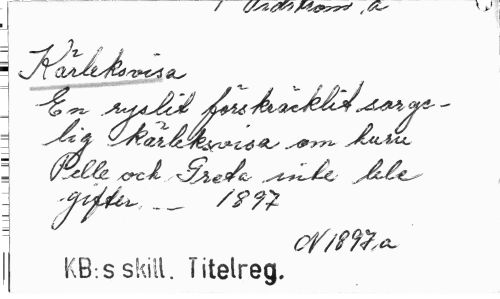 Kärleksvisa
En ryslit förskräcklit sorge-
lig kärleksvisa om huru
Pelle och Greta inte ble
gifter. — 1897
N 1897, a
KB:s skill. Titelreg.